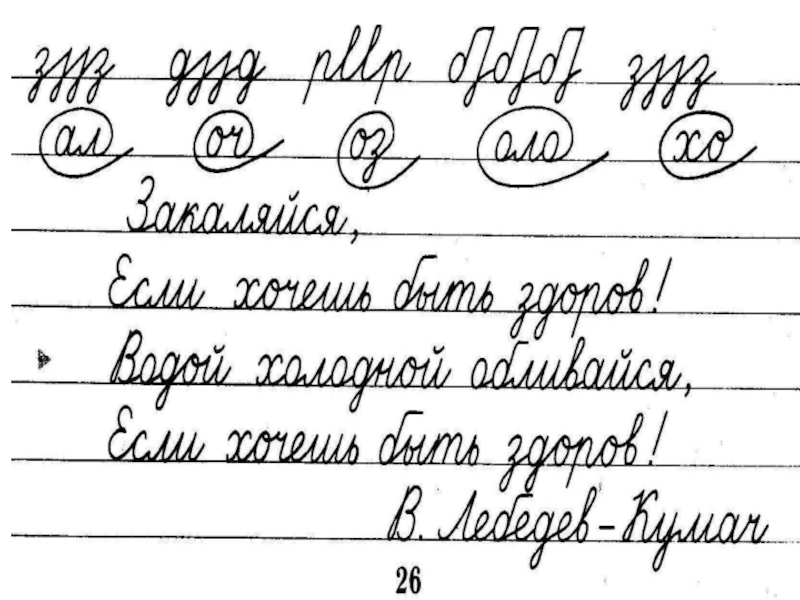 зззз дззд рllр б б б зззз
ал оч оз оло хо
Закаляйся,
Если хочешь быть здоров!
Водой холодной обливайся,
Если хочешь быть здоров!
В. Лебедев-Кумач
26